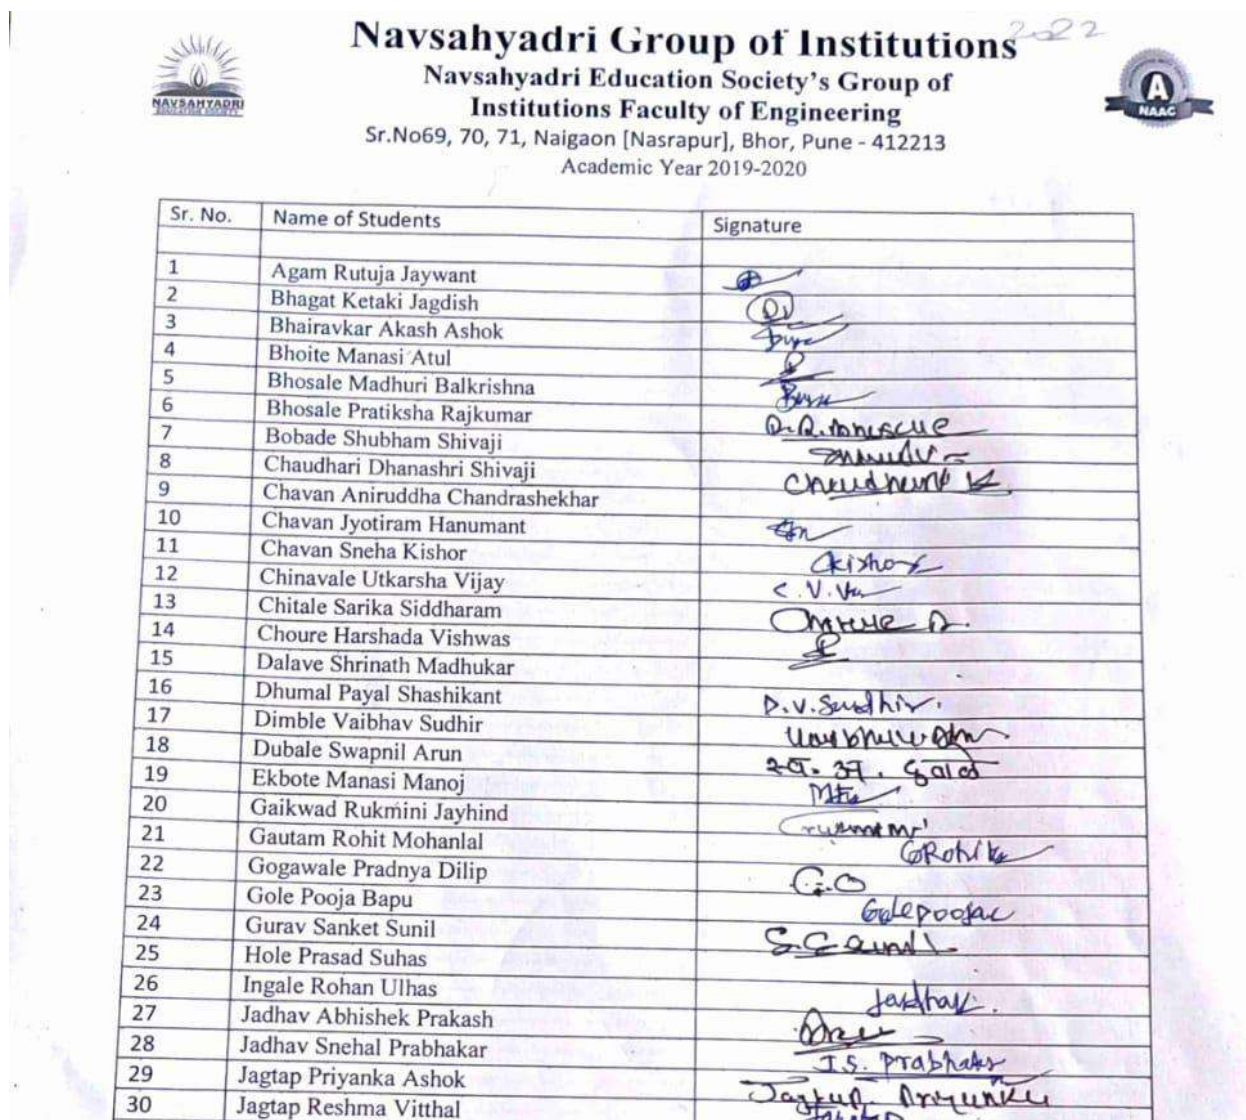 2022
Navsahyadri Group of Institutions
Navsahyadri Education Society's Group of
Institutions Faculty of Engineering
Sr.No69, 70, 71, Naigaon [Nasrapur], Bhor, Pune - 412213
Academic Year 2019-2020
NAVSAHYADRI
EDUCATION SOCIETY
A
NAAC
Sr. No. Name of Students Signature
1 Agam Rutuja Jaywant
2 Bhagat Ketaki Jagdish
3 Bhairavkar Akash Ashok
4 Bhoite Manasi Atul
5 Bhosale Madhuri Balkrishna
6 Bhosale Pratiksha Rajkumar
7 Bobade Shubham Shivaji
8 Chaudhari Dhanashri Shivaji
9 Chavan Aniruddha Chandrashekhar
10 Chavan Jyotiram Hanumant
11 Chavan Sneha Kishor
12 Chinavale Utkarsha Vijay
13 Chitale Sarika Siddharam
14 Choure Harshada Vishwas
15 Dalave Shrinath Madhukar
16 Dhumal Payal Shashikant
17 Dimble Vaibhav Sudhir D.V.Sudhir
18 Dubale Swapnil Arun
19 Ekbote Manasi Manoj
20 Gaikwad Rukmini Jayhind
21 Gautam Rohit Mohanlal
22 Gogawale Pradnya Dilip
23 Gole Pooja Bapu
24 Gurav Sanket Sunil
25 Hole Prasad Suhas
26 Ingale Rohan Ulhas
27 Jadhav Abhishek Prakash Jadhav.
28 Jadhav Snehal Prabhakar
29 Jagtap Priyanka Ashok J.S. Prabhakar
30 Jagtap Reshma Vitthal